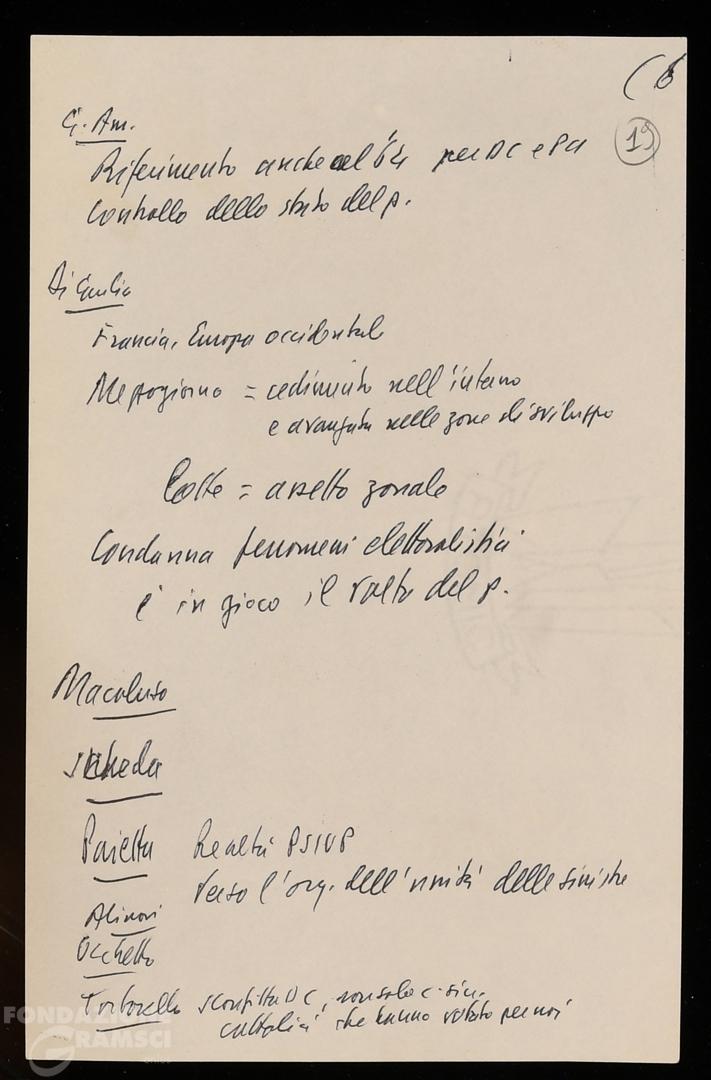 (6
19
G. Am.
Riferimento anche al '64 per DC e PCI
Controllo dello stato del p.
Di Giulio
Francia, Europa occidentale
Mezzogiorno = cedimento nell'interno
e avanzata nelle zone di sviluppo
= assetto zonale
Condanna fenomeni elettoralistici
è in gioco il volto del p.
Macaluso
scheda
Paietta Realtà PSIUP
Verso l'org. dell'unità delle sinistre
Alinovi
Occhetto
Tortorella sconfitta DC, non solo c-sin.
cattolici che hanno votato per noi
FONDAZIONE
GRAMSCI